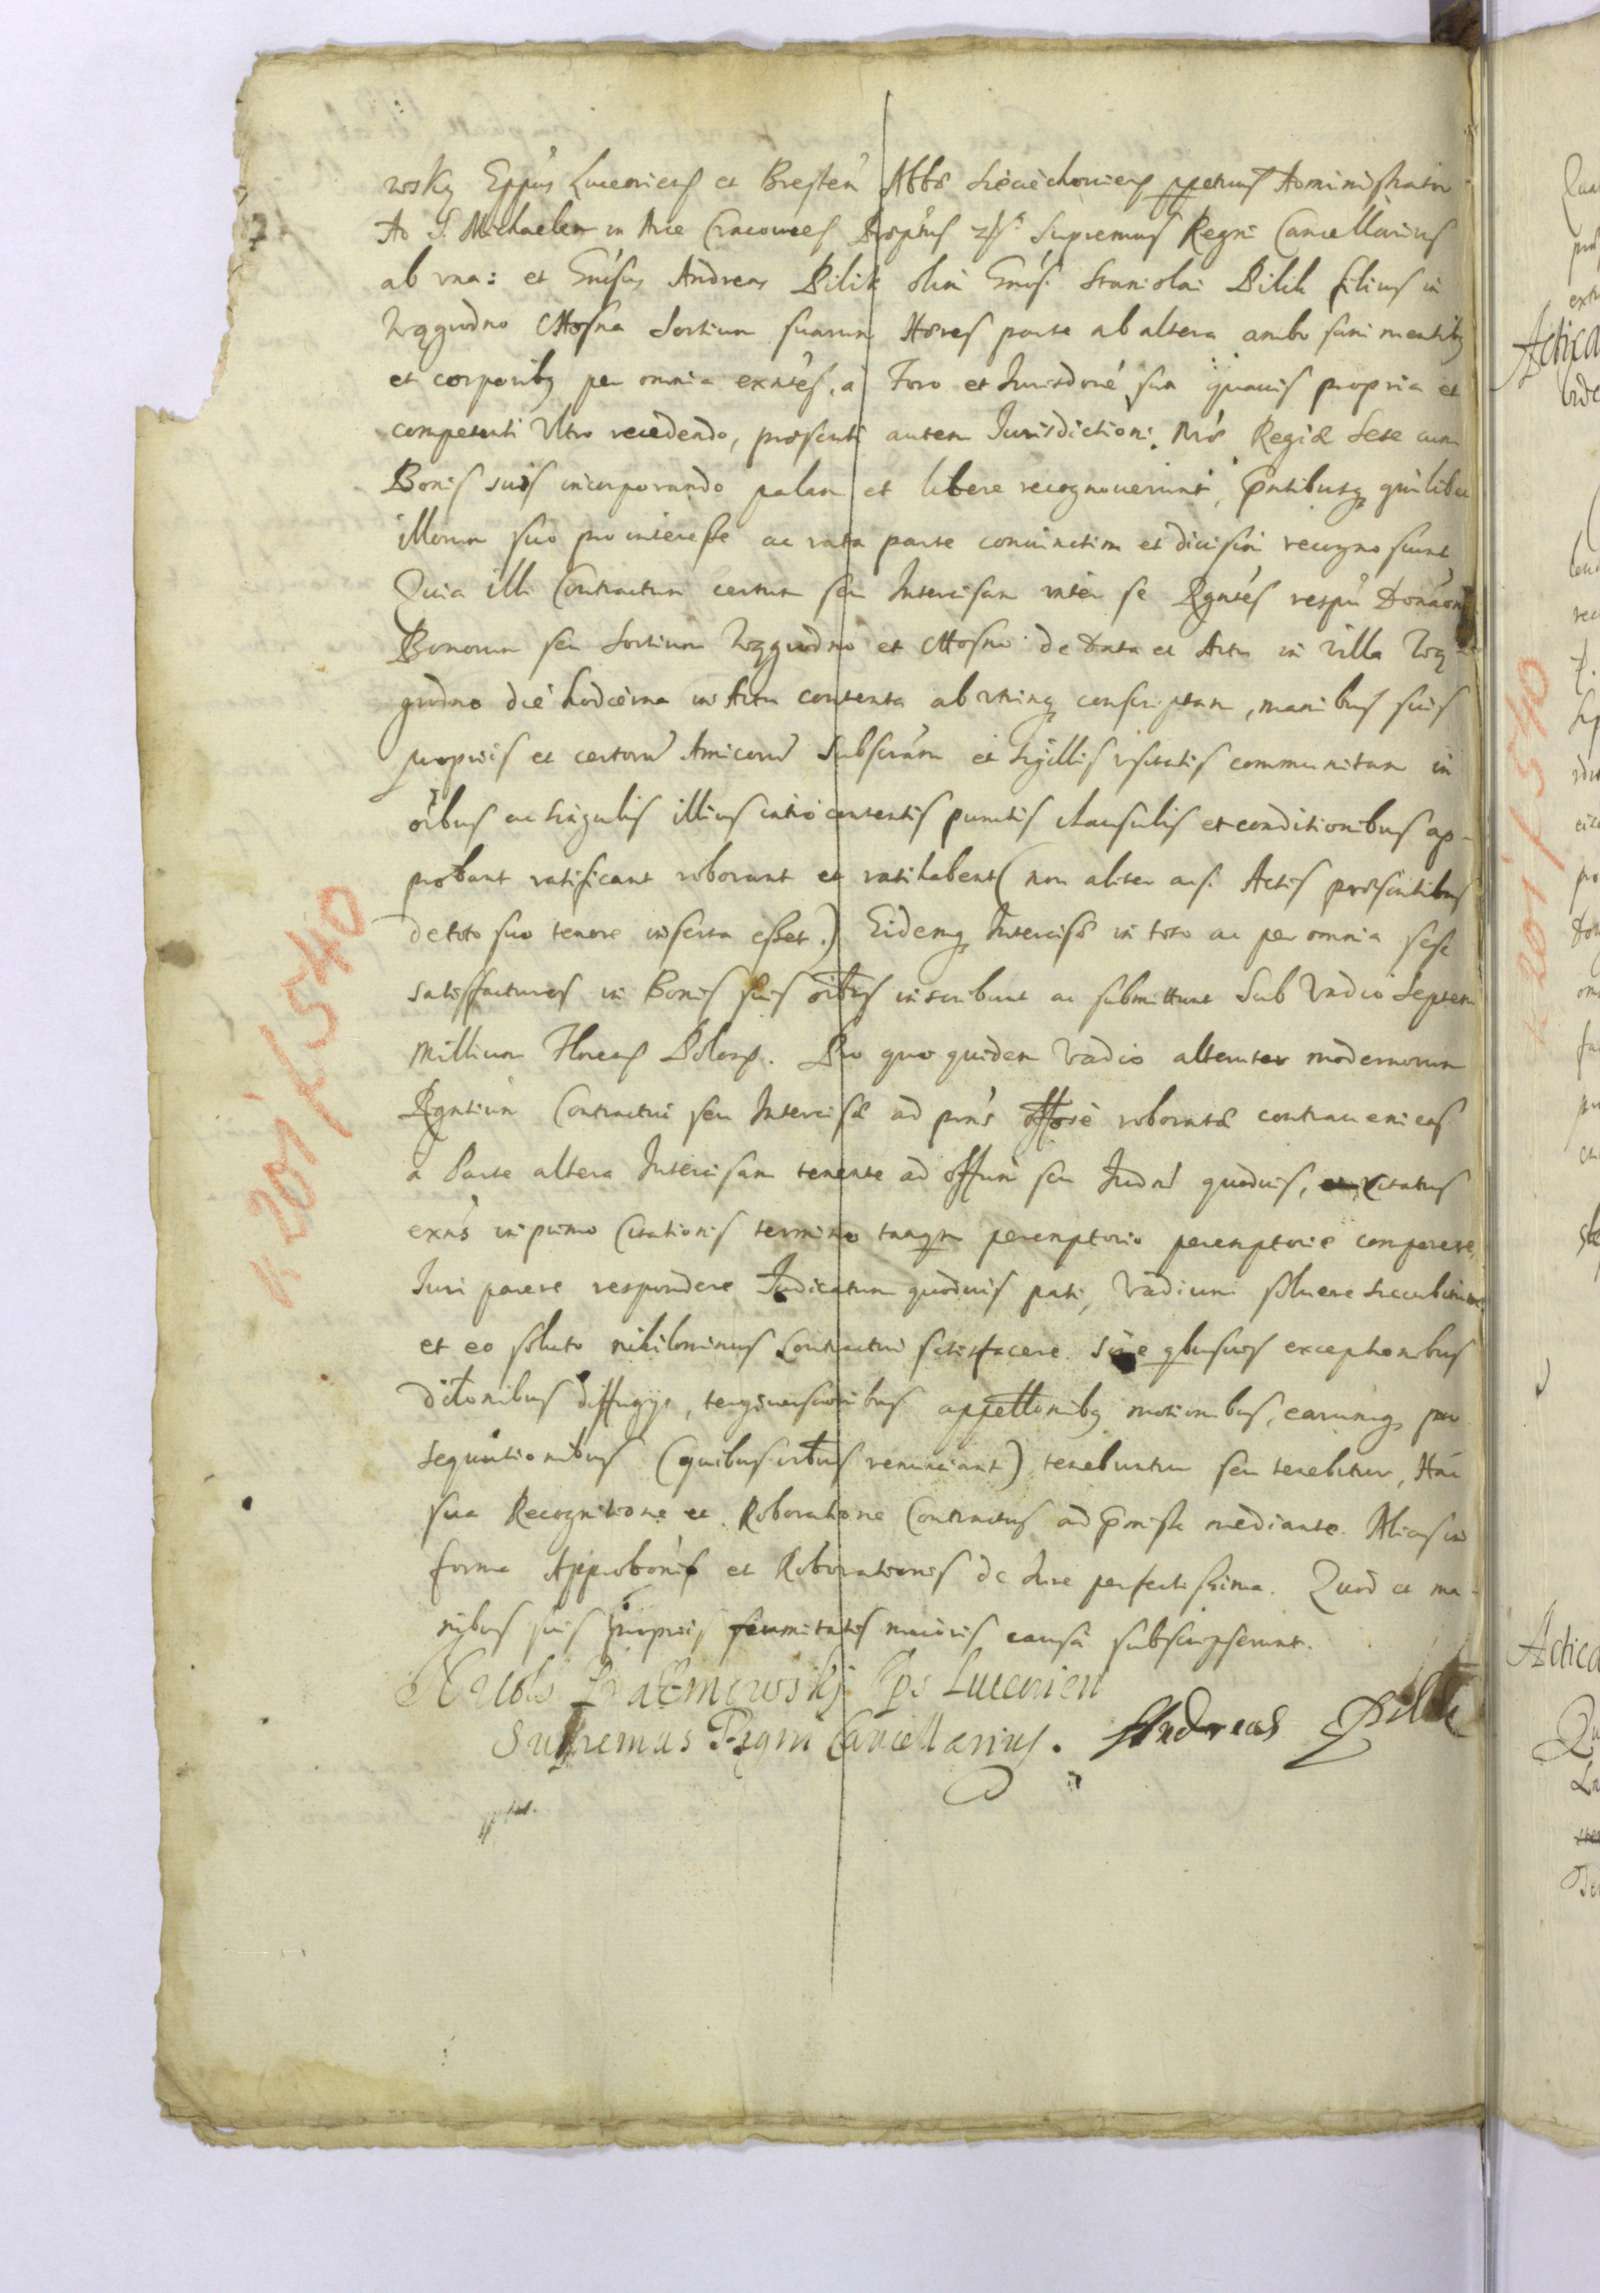 wsky Eppus Luceoricus et Bresten Abbs Sieciechoviens ppetuus Administrator
Ad S. Michaelem in Arce Cracovies Pręptus Supremus Regni Cancellarius
ab una: et Gnosus Andreas Pilik olim Gnosi Stanislai Pilik filius in
Węgrodno Mosna Sortium suarum Hæres parte ab altera ambo sani mentibq
et corporibq per omnia exntes, a Foro et Jurisdone sua quavis propria et
competenti Ultro recedendo, præsenti autem Jurisdictioni Nræ Regiæ Sese cum
Bonis suis incorporando palam et libere recognoverunt, Pntibusq quilibet
illorum suo pro interesse ac rata parte coniunctim et divisim recognoscunt
Quia illi Contractum certum seu Intercisam inter se Rgntes respu Donaon
Bonorum seu Sortium Węgrodno et Mosno de Data et Actu in Villa Wę
grodno die hodierna in Actu contenta ab utrinq conscriptam, manibus suis
proprijs et certoru Amicoru Subscram et Sigillis usitatis communitam in
oibus ac singulis illius intro contentis punctis clausulis et conditionibus ap-
probant ratificant roborant et ratihabent (non aliter acsi Actis præsentibus
de toto suo tenore inserta esset.) Eidemq Intercisæ in toto ac per omnia sese
satisfacturos in Bonis suis oibus inscribunt ac submittunt Sub Vadio Septem
Millium Florens Polons. Pro quo quidem Vadio alteruter modernorum
Rgntium Contractui seu Intercisæ ad pns offose roboratæ contraueniens
a Parte altera Intercisam tenente ad offum seu Judm quodvis, citatus
exns in primo Citationis termino tanqm peremptorio peremptorie comparere,
Juri parere respondere Judicatum quodvis pati, Vadium soluere succubiturus
et eo soluto nihilominus Contractui satisfacere. Sine qbusvis exceptionibus
dilonibus diffugijs, tergiversationibus appellonibq motionibus, earumq pro
sequutionibus (quibus oibus renunciant) tenebuntur seu tenebitur, Hac
sua Recognitione et Roboratione Contractus ad Pmissa mediante. Alias in
forma Approbonis et Roborationis de Jure perfectissima. Quod et ma-
nibus suis proprijs firmitatis maioris causa subscripserunt.
Nicols Prażmowskj Eps Luceorien
Supremus Regni Cancellarius. Andreas Pilik
pst.
K 201 f 540
7